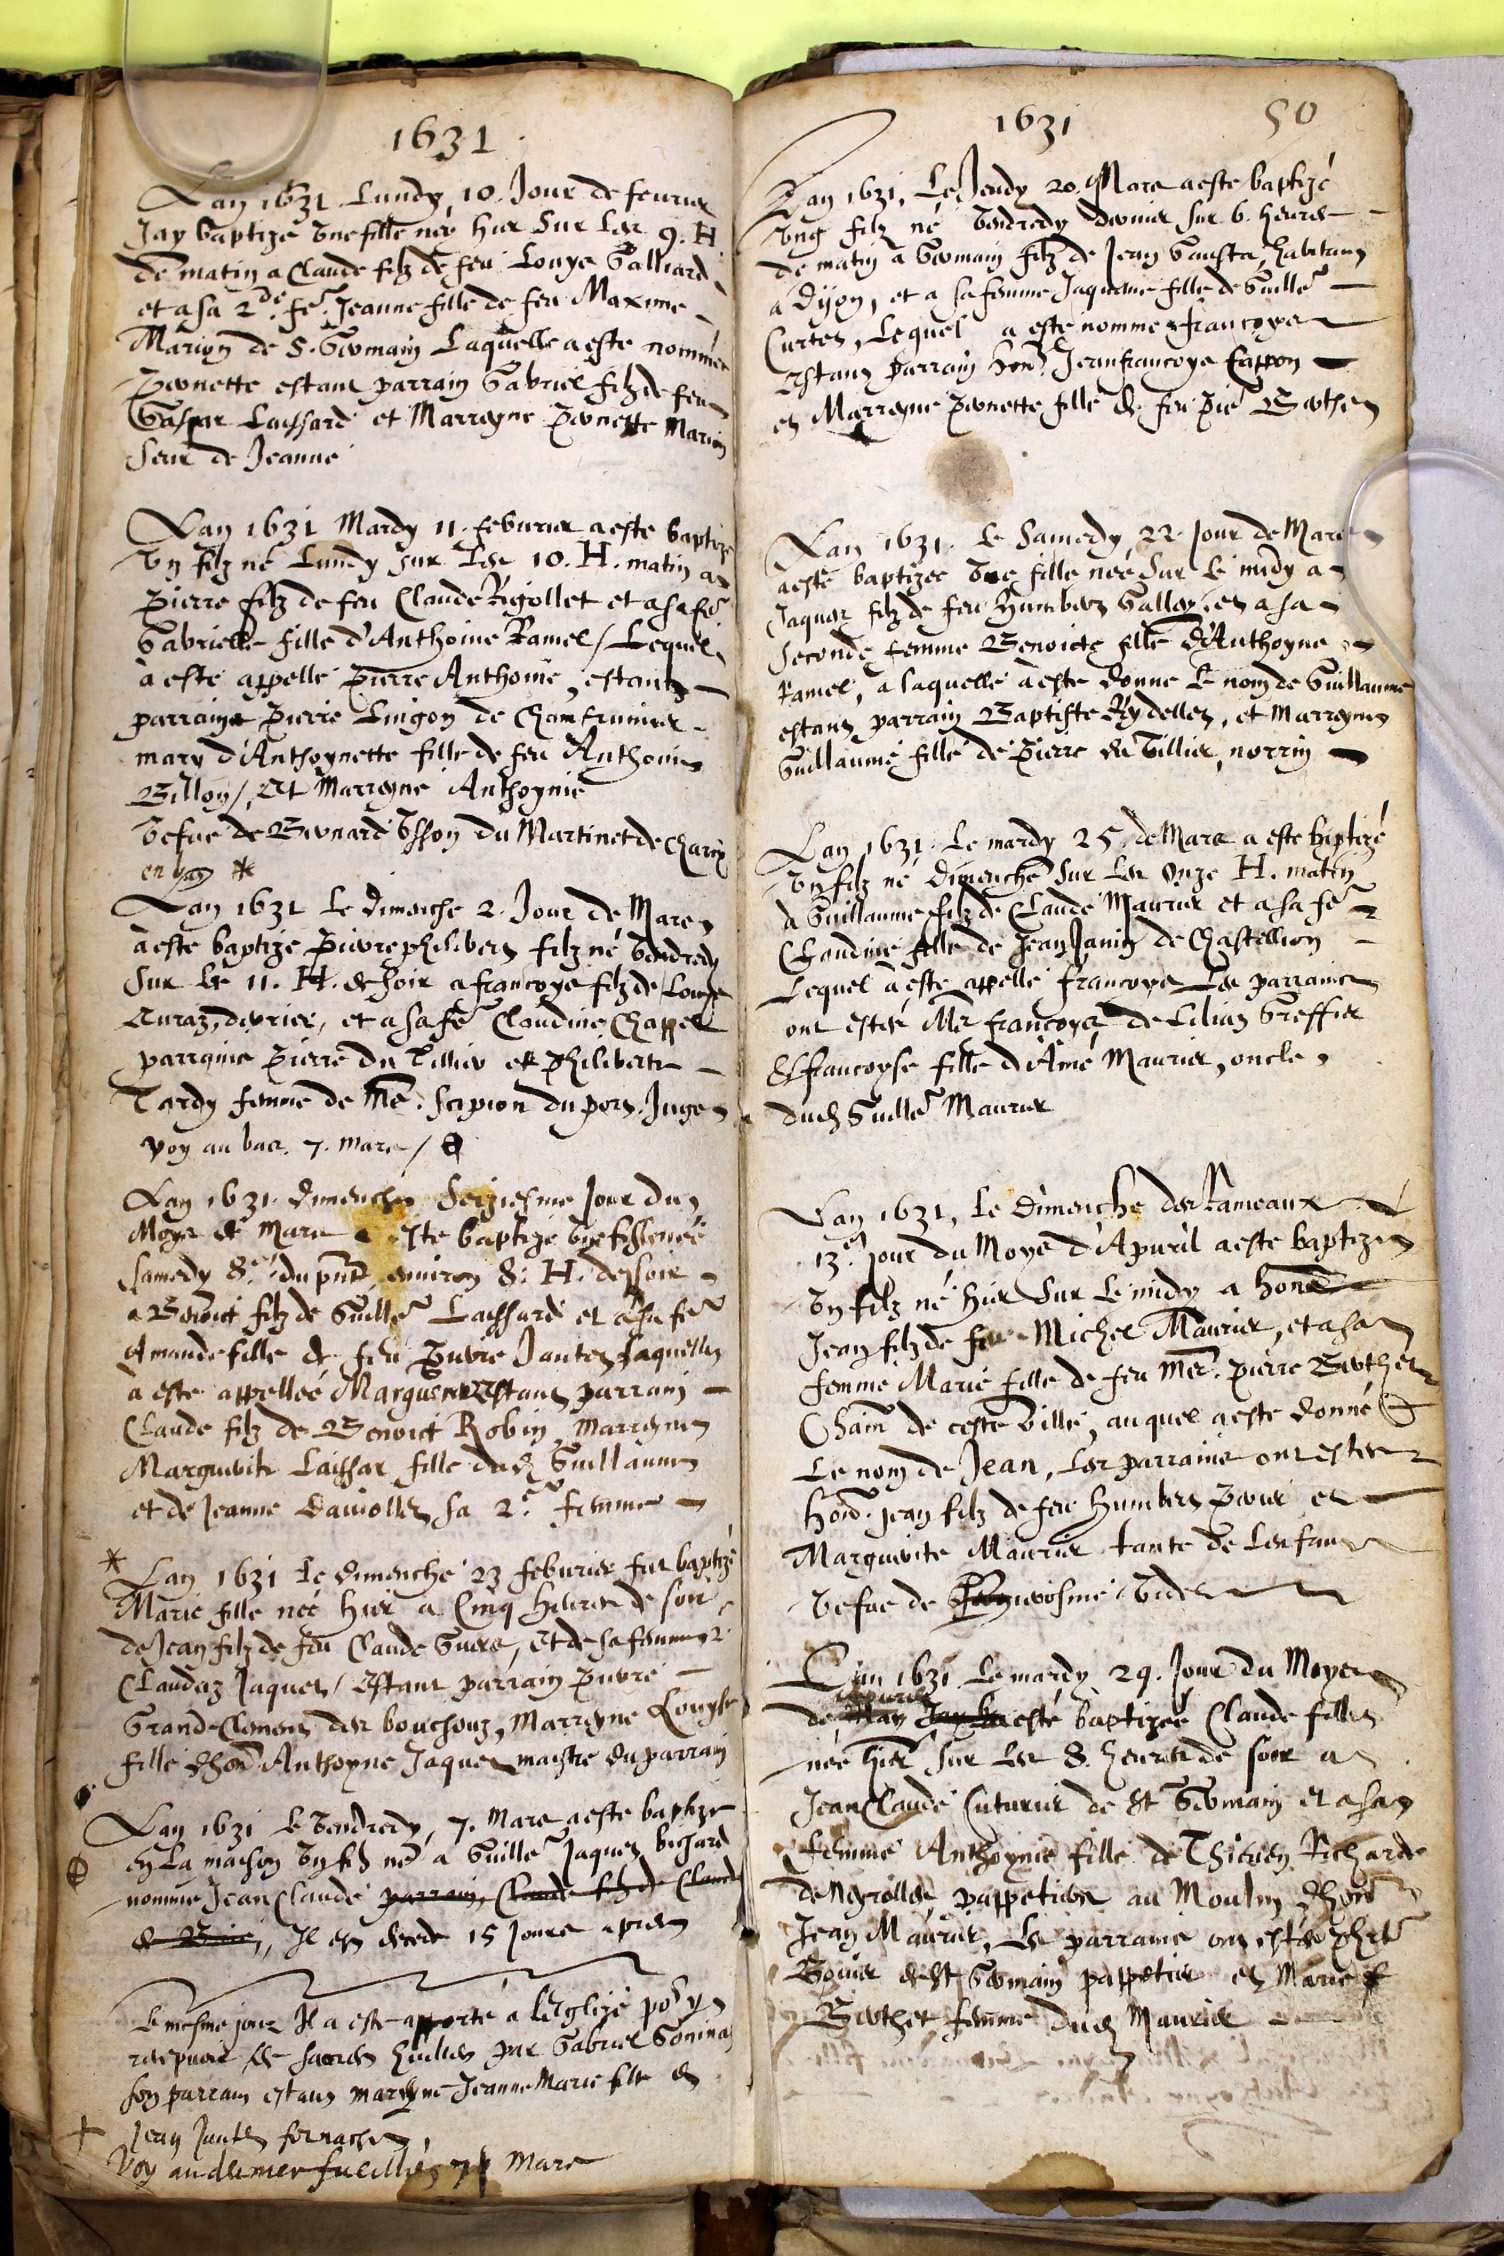 1631
Lan 1631 Lundy, 10. Jour de feurier
Jay baptizé Une fille neé hier Sur Les 9. H
de matin a Claude filz de feu Louys Galliard
et a sa 2de. fe. Jeanne fille de feu Maxime
Marion de S. Germain Laquelle a este nommée
Pernette estant parrain Gabriel filz de feu
Gaspar Laissard et Marreyne Pernette Marion
Seur de Jeanne
Lan 1631 Mardy 11. feburier a este baptizé
Un filz né Lundy sur Les 10. H. matin a
Pierre filz de feu Claude Rigollet et a sa fe
Gabrielle fille d'Anthoine Ramel / Lequel
à esté appellé Pierre Anthoine, estantz
parrains Pierre Lingon de
mary d'Anthoynette fille de feu Anthoine
Billon /, Et Marreyne Anthoynie
Vefue de Bernard Usson du Martinet de Charix
en bas *
Lan 1631 Le dimenche 2. Jour de Mars
a este baptizé Pierre philibert filz né Vendredy
Sur Les 11. H. de soir a françoys filz de Louys
et a sa fe Claudine Chappel
parrains Pierre du Tillier et Philiberte
Tardy femme de Me. Scipion du port Juge
voy au bas. 7. mars /
Lan 1631 dimenche Seiziesme Jour du
Moys de Mars a este baptizé Une fille neé
Samedy 8e du pnt enuiron 8. H. de soir
a Benoict filz de Guille Laissard et a sa fe
Amande fille de feu Pierre Jantet Laquelle
à este appelleé Marguerite Estant parrain
Claude filz de Benoict Robin, Marreyne
Marguerite Laissar fille dud Guillaume
et de Jeanne Dauiollet sa 2e femme
* Lan 1631 Le dimenche 23 feburier fut baptizé
Marie fille neé hier a Cinq heures de soir
de Jean filz de feu Claude Guers, et de sa femme
Claudaz Jaquet / estant parrain Pierre
Grand Clement des bouchouz, Marreyne Louyse
fille dhon Anthoyne Jaquet maistre du parrain
Lan 1631 Le Vendredy, 7. Mars a este baptizé
en La maison Un filz né a Guille Jaquet
nommé Jean Claude parrain, Claude filz de Claude
Il est decede 15 Jours apres
Le mesme jour Il a este apporté a lEglize por y
recepuoir les sacres huiles par Gabriel Gonina
son parrain estant marreyne Jeanne Marie fille de
+ Jean Jantet fornachon
Voy au dernier fueillet 7 Mars
1631
50
Lan 1631, Le Jeudy 20. Mars a este baptizé
Ung filz né Vendredy dernier sur 6. heures
de matin a Germain filz de Jean habitant
a Dijon, et a sa femme Jaquème fille de Guille
Curtet, Lequel a este nommé françoys
Estant parrain hon. Jeanfrançoys Cappon
et Marreyne Pernette fille de feu Pie Berthet
Lan 1631. Le Samedy 22. Jour de Mars
a este baptizée Une fille neé Sur Le midy a
Jaques filz de feu Humbert Gallay, et a sa
Seconde femme Benoicte fille d'Anthoyne
Ramel, a laquelle à este donne Le nom de Guillaume
estant parrain Baptiste Rydellet, et Marreyne
Guillaume fille de Pierre du Tillier, norrin
Lan 1631. Le mardy 25. de Mars a este baptizé
Un filz né Dimenche Sur Les Onze H. matin
à Guillaume filz de Claude Maurier et a sa fe
Claudine fille de Jean Janin de Chastellion
Lequel à este appellé françoys Les parrains
ont estés Mr françoys de Lilaz Greffier
et françoyse fille d'Amé Maurier, oncle
dud Guille Maurier
Lan 1631, Le dimenche des Rameaux
13e. jour du Moys d'Apuril a este baptizé
Un filz né hier Sur Le midy a hon
Jean filz de feu Michel Maurier, et a sa
femme Marie fille de feu Me. pierre Berthet
Chain de ceste ville, auquel a este donné
Le nom de Jean, Les parrains ont estes
hon. jean filz de feu Humbert Perier et
Marguerite Maurier tante de Lenfant
Vefue de
Lan 1631 Le mardy 29. Jour du Moys
apuril
de May Jay a esté baptizeé Claude fille
neé hier sur Les 8. heures de soir a
Jean Claude Cuturier de St Germain et a sa
femme Anthoynie fille de Thieuen Richard
de Neyrolles, pappetier au Moulin dhon
Jean Maurier, Les parrains ont estés
Bouier de St Germain pappetier et Marie
Berthet femme dud Maurier